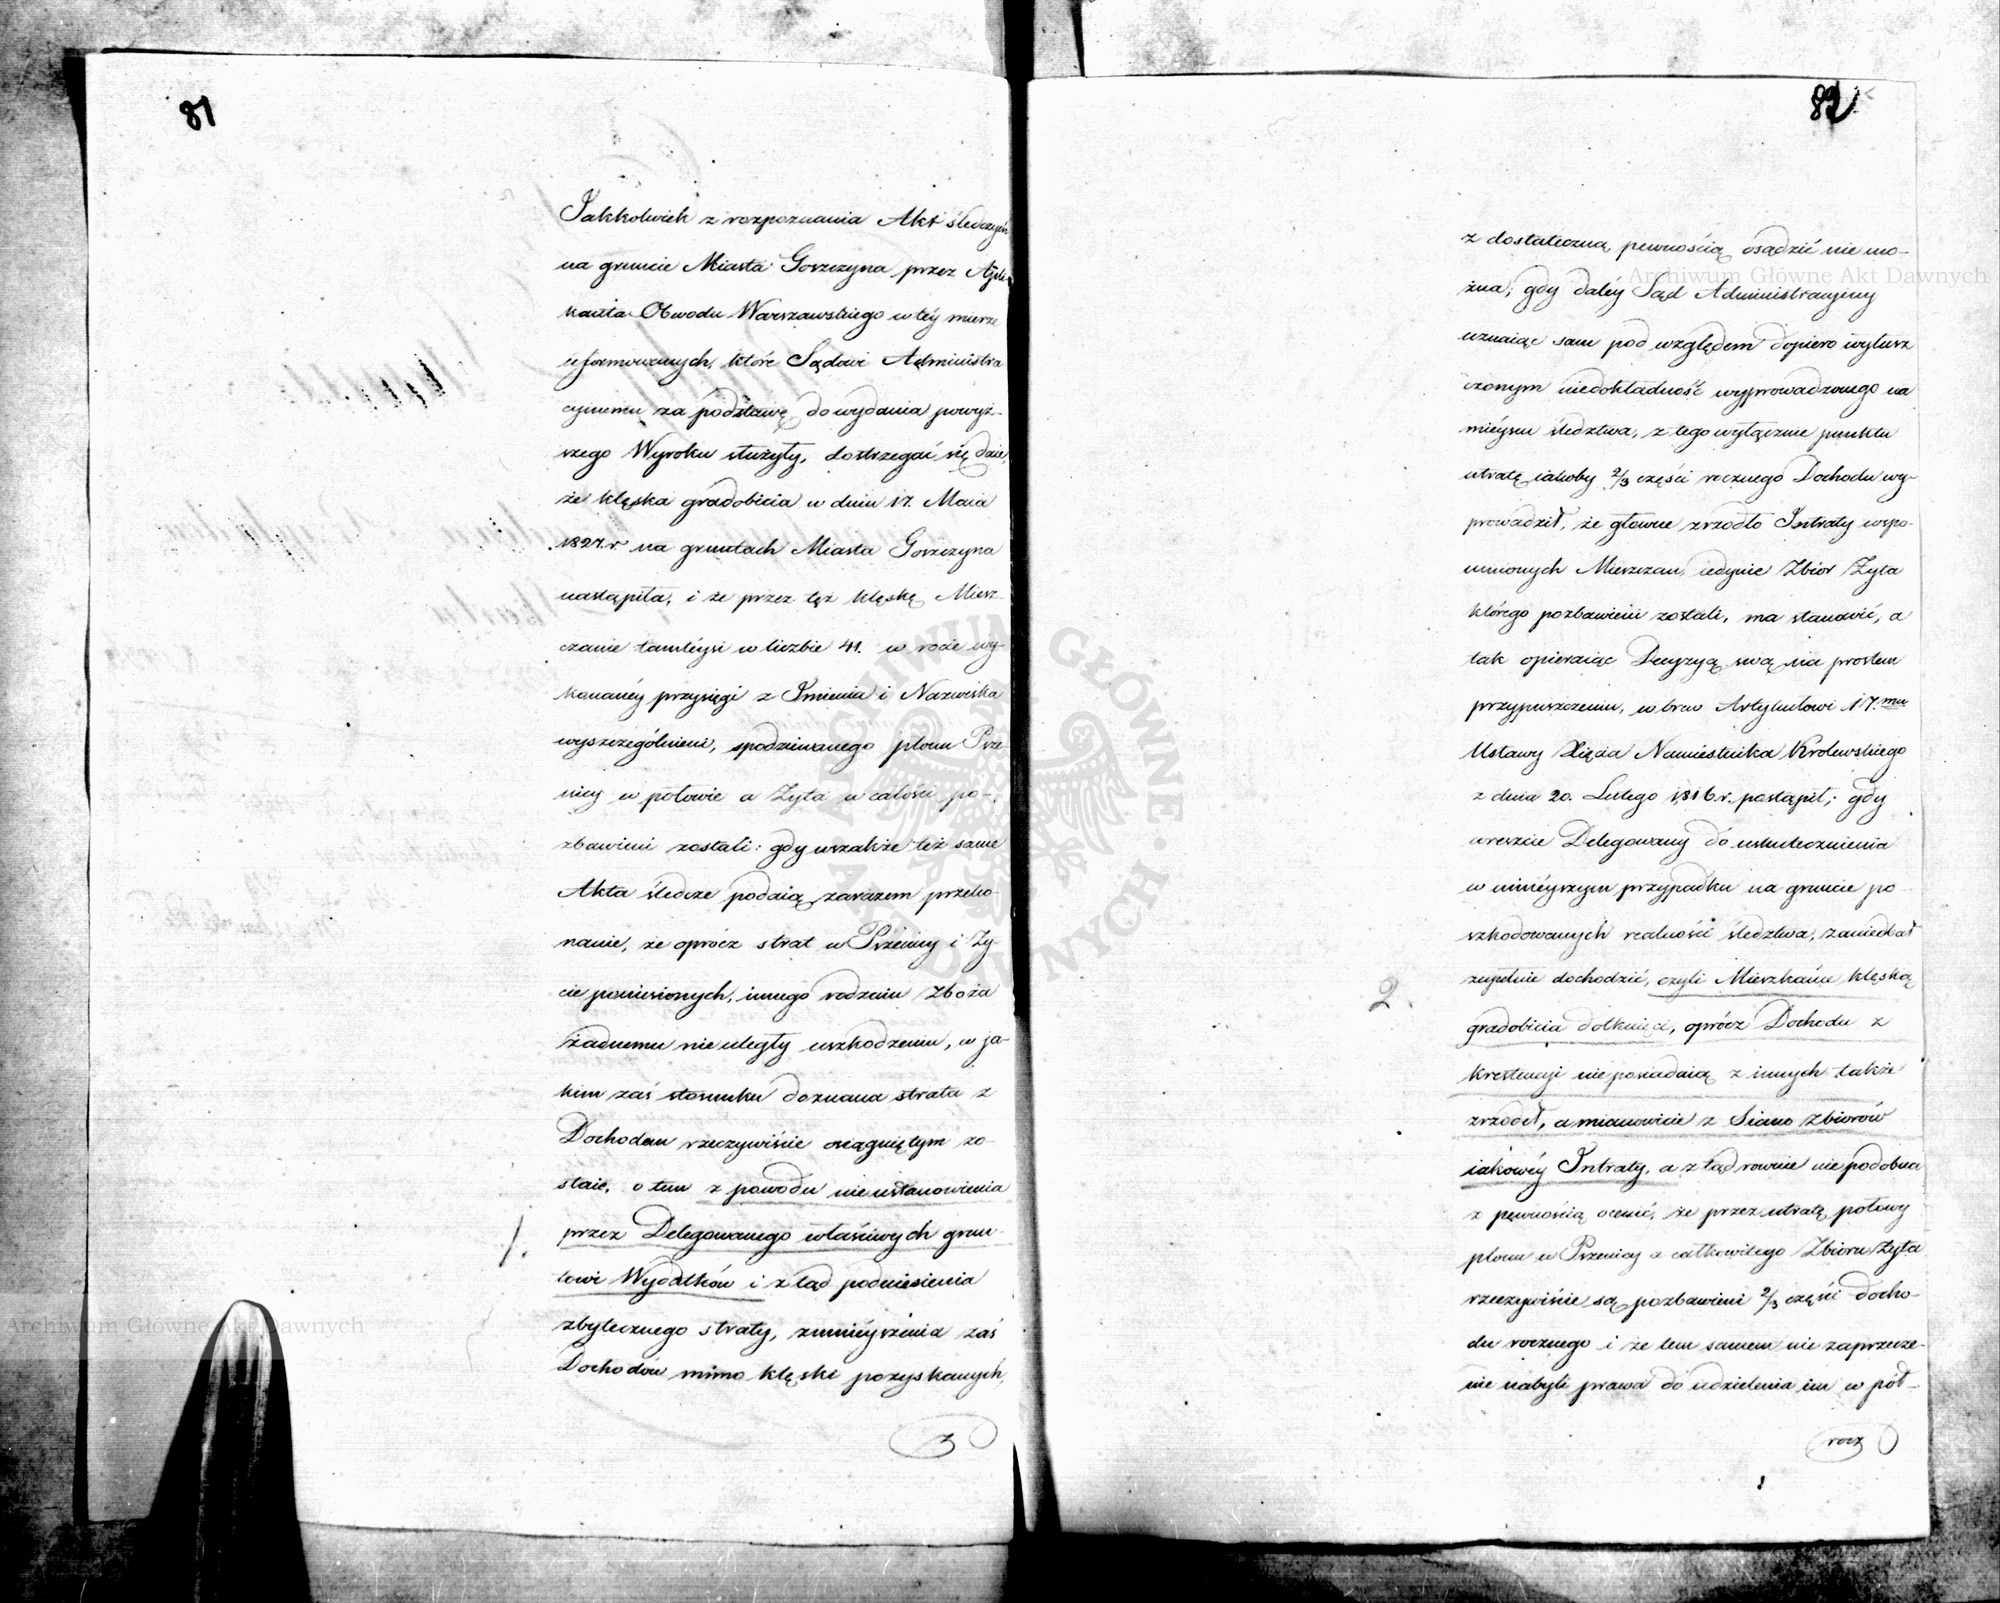 81
Jakkolwiek z rozpoznania Akt śledczych
na gruncie Miasta Goszczyna przez
Obwodu Warszawskiego w tey mierze
uformowanych, które Sądowi Administra
cyinemu za podstawę do wydania powyż-
szego Wyroku służyły, dostrzegać się daie,
że klęska gradobicia w dniu 17. Maia
1827. r. na gruntach Miasta Goszczyna
nastąpiła, i że przez też klęskę Miesz-
czanie tamteysi w liczbie 41. w rocie wy-
konaney przysięgi z Imienia i Nazwiska
wyszczególnieni, spodziewanego plonu Psze
nicy w połowie a Żyta w całości po-
zbawieni zostali: gdy wszakże też same
Akta śledcze podaią zarazem przeko-
nanie, że oprócz strat w Pszenicy i Ży-
cie poniesionych, innego rodzaiu Zboża
żadnemu nie uległy uszkodzeniu, w ja-
kim zaś stosunku doznana strata z
Dochodem rzeczywiście osiągniętym zo-
staie, o tem z powodu nieustanowienia
1. przez Delegowanego właściwych grun-
towi Wydatków i z tąd podniesienia
zbytecznego straty, zmnieyszenia zaś
Dochodów mimo klęski pozyskanych,
z
82
z dostateczną pewnością osądzić nie mo-
żna; gdy daley Sąd Administracyiny
uznaiąc sam pod względem dopiero wyłusz
czonym niedokładność wyprowadzonego na
mieyscu śledztwa, z tego wyłącznie punktu
utratę iakoby 2/3 części rocznego Dochodu wy-
prowadził, że główne zrzodło Intraty wspo-
mnionych Mieszczan, iedynie Zbior Żyta
którego pozbawieni zostali, ma stanowić, a
tak opieraiąc Decyzyą swą na prostem
przypuszczeniu, wbrew Artykułowi 17.mu
Ustawy Xięcia Namiestnika Krolewskiego
z dnia 20. Lutego 1816 r. postąpił; gdy
wreszcie Delegowany do uskutecznienia
w ninieyszym przypadku na gruncie po-
szkodowanych realności śledztwa, zaniedbał
zupełnie dochodzić, czyli Mieszkańce klęską
2. gradobicia dotknięci, oprócz Dochodu z
krestencyi nie posiadaią z innych także
zrzodeł, a mianowicie z Siano Zbiorów
iakowey Intraty, a z tąd rownie nie podobna
z pewnością ocenić, że przez utratę połowy
plonu w Pszenicy a całkowitego Zbioru Żyta
rzeczywiście są pozbawieni 2/3 części docho-
du rocznego i że tem samem nie zaprzecze-
nie nabyli prawa do udzielenia im w pół-
rocz
Archiwum Główne Akt Dawnych
Archiwum Główne Akt Dawnych
ARCHIWUM GŁÓWNE AKT DAWNYCH